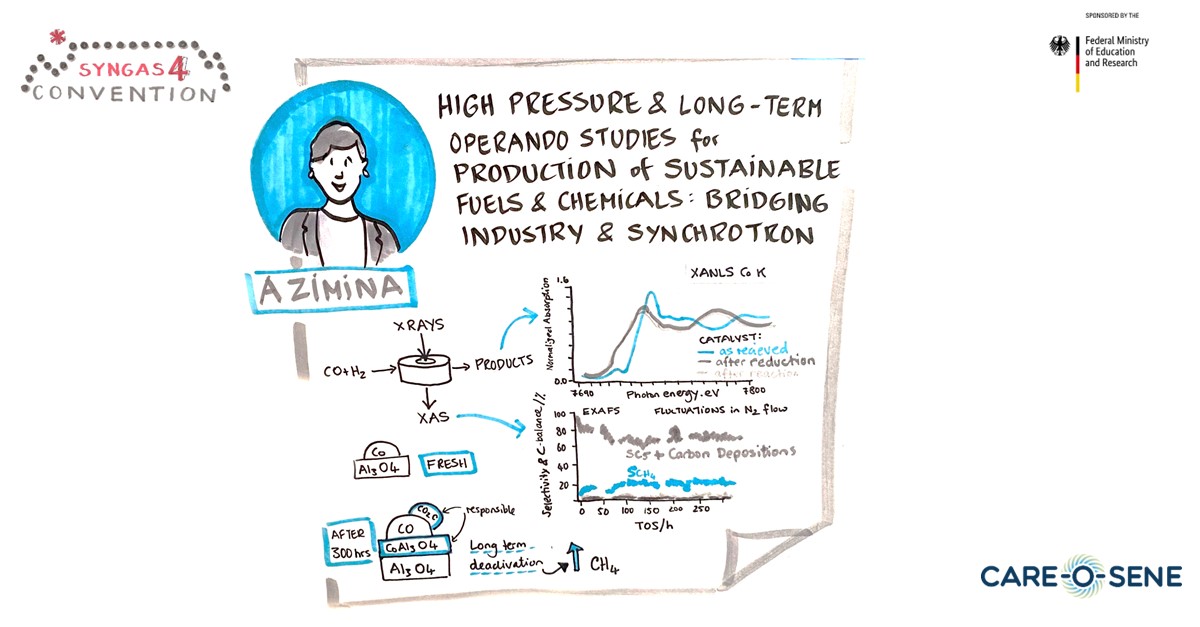 SPONSORED BY THE
Federal Ministry
of Education
and Research
SYNGAS4
CONVENTION
HIGH PRESSURE & LONG-TERM
OPERANDO STUDIES for
PRODUCTION of SUSTAINABLE
FUELS & CHEMICALS: BRIDGING
INDUSTRY & SYNCHROTRON
AZIMINA
XRAYS
CO+H2
PRODUCTS
XAS
XANLS Co K
Normalized Absorption
1.6
0.0
7690
Photon energy.eV
7800
CATALYST:
as recieved
after reduction
after reaction
Selectivity & C-balance /%
EXAFS
FLUCTUATIONS in N2 flow
100
80
60
40
20
SC5 + Carbon Depositions
SCH4
0 50 100 150 200 250
TOS/h
Co
Al3O4
FRESH
AFTER
300hrs
CO2C
responsible
CO
CoAl3O4
Al3O4
Long term
deactivation
CH4
CARE-O-SENE